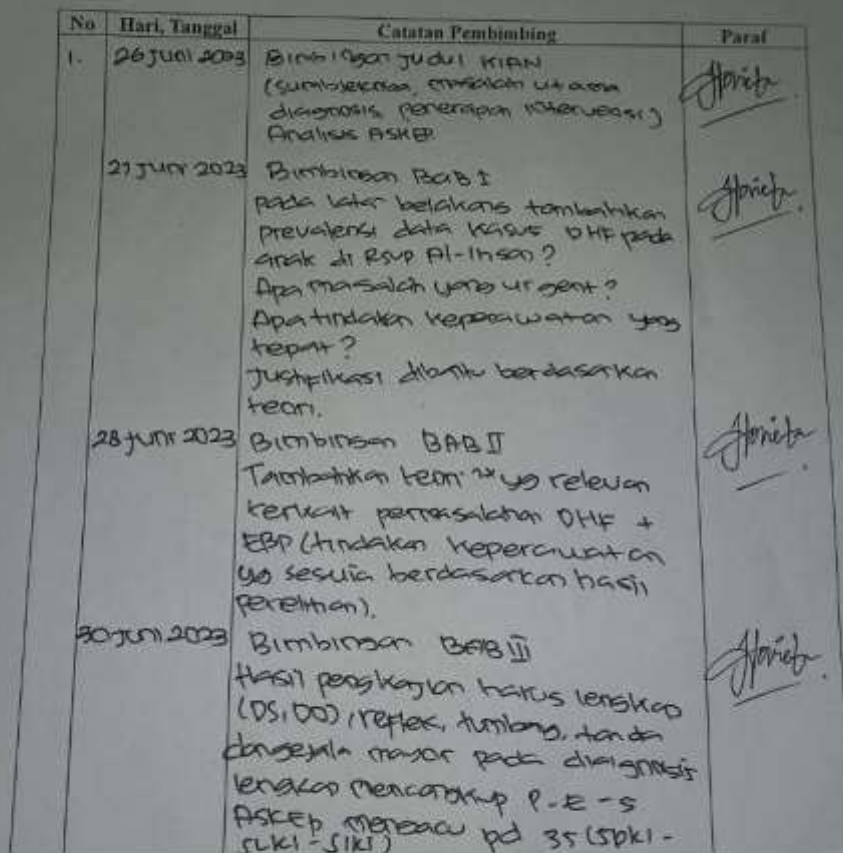 No Hari, Tanggal Catatan Pembimbing Paraf
1. 26 Juni 2023 Bimbingan judul KIAN
masalah utama
diagnosis, penerapan intervensi)
Analisis ASKEP
27 Juni 2023 Bimbingan BAB I
pada latar belakang tambahkan
prevalensi data kasus DHF pada
anak di RSUP Al-Ihsan?
Apa masalah yang urgent?
Apa tindakan keperawatan yang
tepat?
Justifikasi dibantu berdasarkan
teori.
28 Juni 2023 Bimbingan BAB II
Tambahkan teori yg relevan
terkait permasalahan DHF +
EBP (tindakan keperawatan
yg sesuia berdasarkan hasil
penelitian).
30 Juni 2023 Bimbingan BAB III
Hasil pengkajian harus lengkap
(DS, DO), reflek, tumbang, tanda
dan gejala mayor pada diagnosis
lengkap mencangkup P-E-S
ASKEP mengacu pd 3S (SDKI -
SLKI - SIKI)